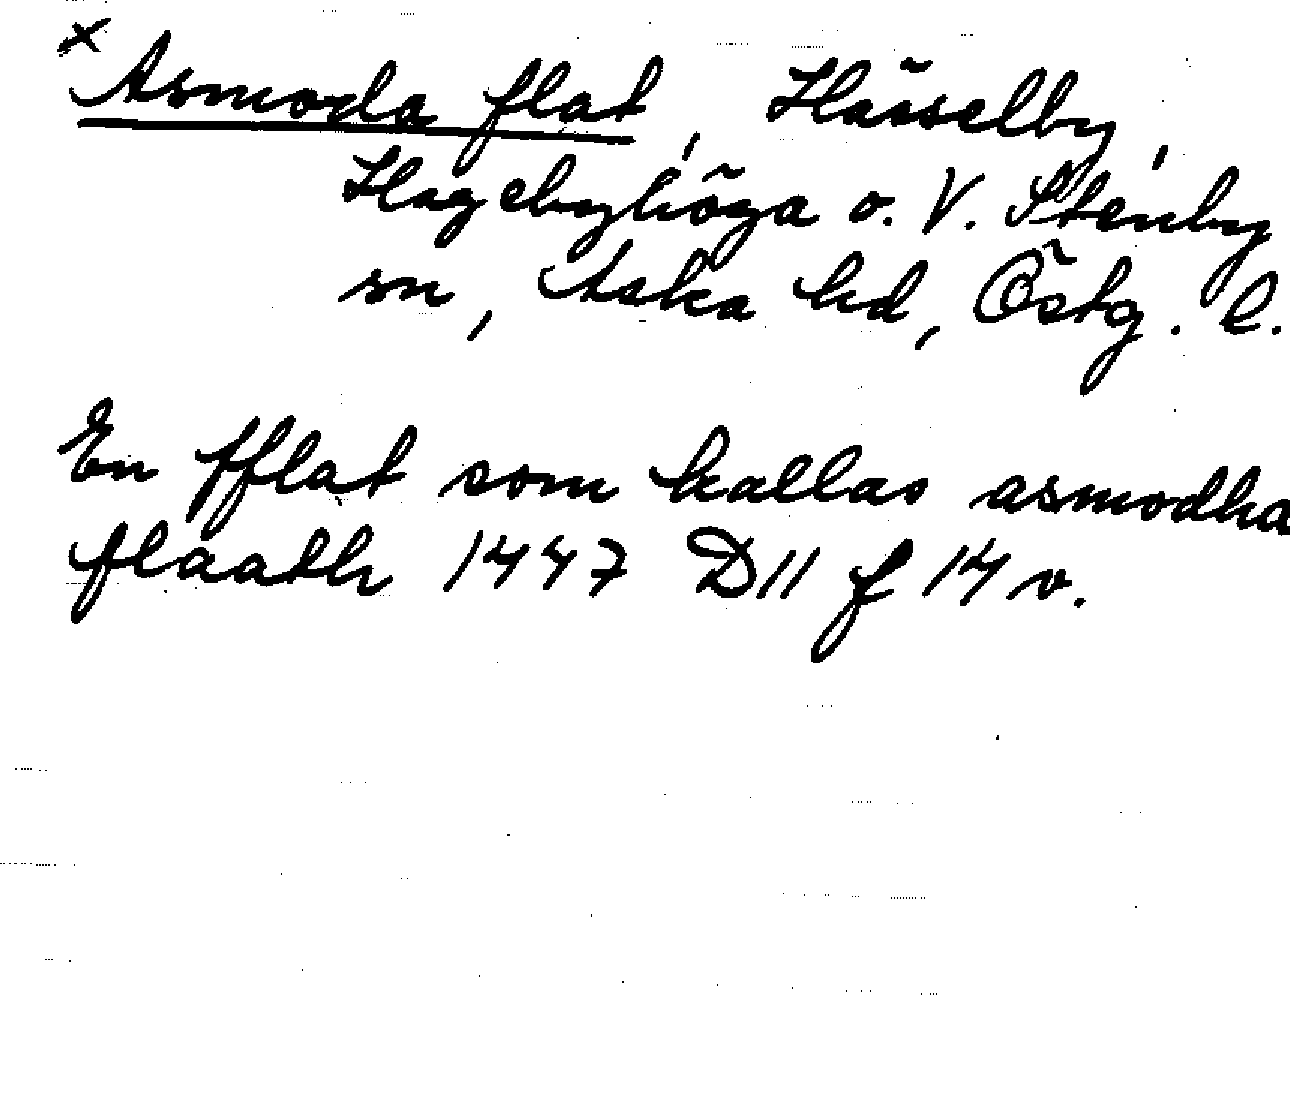 x Asmoda flat, Hässelby,
Hagebyhöga o. V. Stenby
sn, Aska hd, Östg. l.
En fflat som kallas asmodha
flaath 1447 D11 f 14 v.